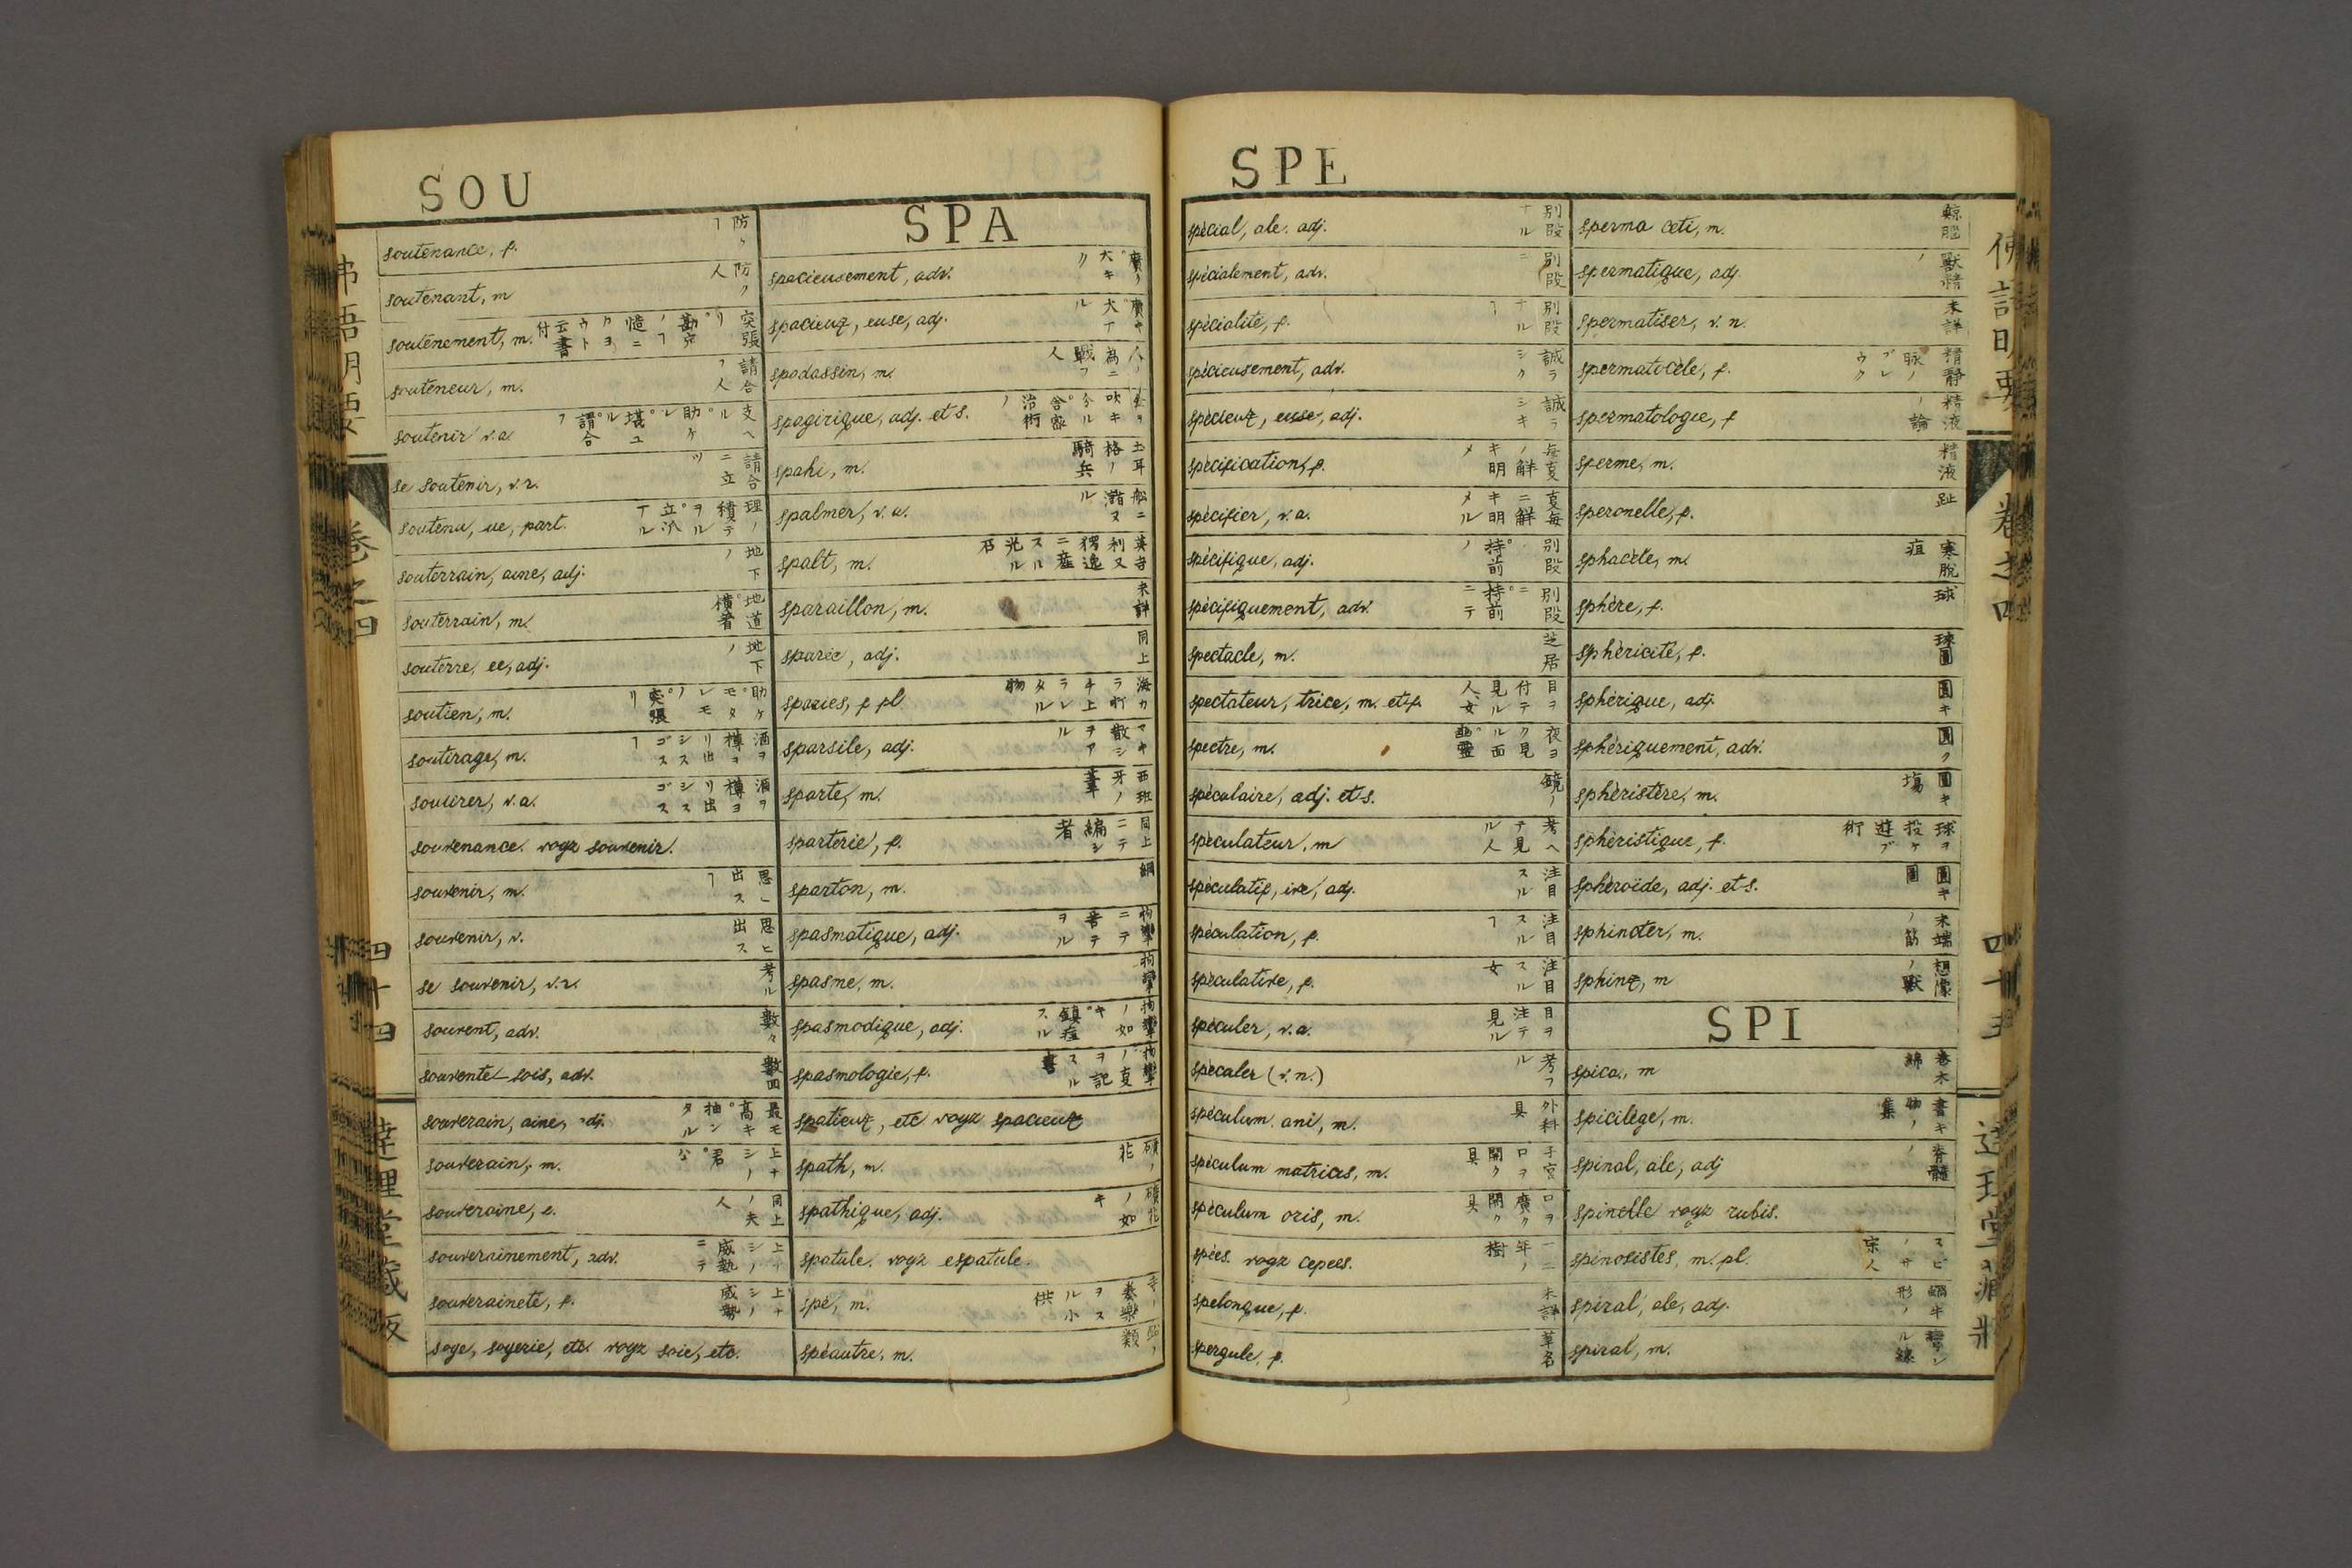 SOU
soutenance, f. 防クヿ
soutenant, m 防ク人
soutènement, m.
souteneur, m. 請合フ人
soutenir v.a 支ヘル。助ケル。堪ユル。請合フ
se soutenir, v.r. 請合ニ立ツ
soutenu, ue, part.
souterrain, aine, adj. 地下ノ
souterrain, m. 地道。横着
souterré, ée, adj. 地下ノ
soutien, m. 助ケ。モタレモノ。突張リ
soutirage, m. 酒ヲ樽ヨリ出シスゴスヿ
soutirer, v.a. 酒ヲ樽ヨリ出シスゴス
souvenance. voyz souvenir.
souvenir, m. 思ヒ出スヿ
souvenir, v. 思ヒ出ス
se souvenir, v.r. 考ル
souvent, adv. 數々
souvente-fois, adv. 數回
souverain, aine, adj. 最モ高キ。抽ンタル
souverain, m. 上ナシノ君。公
souveraine, f. 同上ノ夫人
souverainement, adv. 上ナシノ威勢ニテ
souveraineté, f. 上ナシノ威勢
soye, soyerie, etc. voyz soie, etc.
SPA
spacieusement, adv. 廣ク。大キク
spacieux, euse, adj. 廣キ。大ナル
spadassin, m. 人ノ為ニ戰フ人
spagirique, adj. et s.
spahi, m. 土耳格ノ騎兵
spalmer, v.a. 船ニ瀝ヌル
spalt, m.
sparaillon, m. 未詳
sparée, adj. 同上
sparies, f pl.
sparsile, adj. マキ散シテアル
sparte, m. 西班牙ノ草
sparterie, f. 同上ニテ編シ者
sparton, m. 綱
spasmatique, adj.
spasme, m. 拘攣
spasmodique, adj. 拘攣ノ如キ。鎮痙スル
spasmologie, f. 拘攣ノ叓ヲ記スル書
spatieux, etc voyz spacieux
spath, m.
spathique, adj.
spatule. voyz espatule.
spé, m. 寺ノ奏樂ヲスル小供
spéautre, m.
SPE
spécial, ale. adj. 別段ナル
spécialement, adv. 別段ニ
spécialité, f. 別段ナルヿ
spécieusement, adv. 誠ラシク
spécieux, euse, adj. 誠ラシキ
spécification, f. 毎叓ノ解キ明メ
spécifier, v.a. 叓毎ニ解キ明メル
spécifique, adj. 別段。持前ノ
spécifiquement, adv. 別段ニ。持前ニテ
spectacle, m. 芝居
spectateur, trice, m. et f. 目ヲ付テ見ル人、女
spectre, m. 夜ヨク見ル面。幽霊
spéculaire, adj. et s. 鏡ノ
spéculateur, m 考ヘテ見ル人
spéculatif, ive, adj. 注目スル
spéculation, f. 注目スルヿ
spéculative, f. 注目スル女
spéculer, v.a. 目ヲ注テ見ル
spécaler (v.n.) 考フル
spéculum ani, m. 外科具
spéculum matricis, m. 子宮口ヲ開ク具
spéculum oris, m. 口ヲ廣ク開ク具
spées. voyz cepées. 一二年ノ樹
spélonque, f. 未詳
spergule, f. 草名
sperma ceti, m. 鯨脳
spermatique, adj. 獸精ノ
spermatiser, v.n. 未詳
spermatocèle, f.
spermatologie, f 精液ノ論
sperme, m. 精液
speronelle, f.
sphacèle, m. 寒脱疽
sphère, f. 球
sphéricité, f. 球圓
sphérique, adj. 圓キ
sphériquement, adv. 圓ク
sphéristère, m. 圓キ場
sphéristique, f. 球ヲ投ケ遊ブ術
sphéroïde, adj. et s. 圓キ圖
sphincter, m. 末端ノ筋
sphinx, m 想像ノ獸
SPI
spica, m 巻木綿
spicilège, m. 書キ物ノ集
spinal, ale, adj 脊髄ノ
spinelle voyz rubis.
spinosistes, m. pl. スピノサノ宗人
spiral, ale, adj. 蝸牛形ノ
spiral, m.
佛語明要
巻之四
四十四
達理堂蔵版
四十五
達理堂蔵版